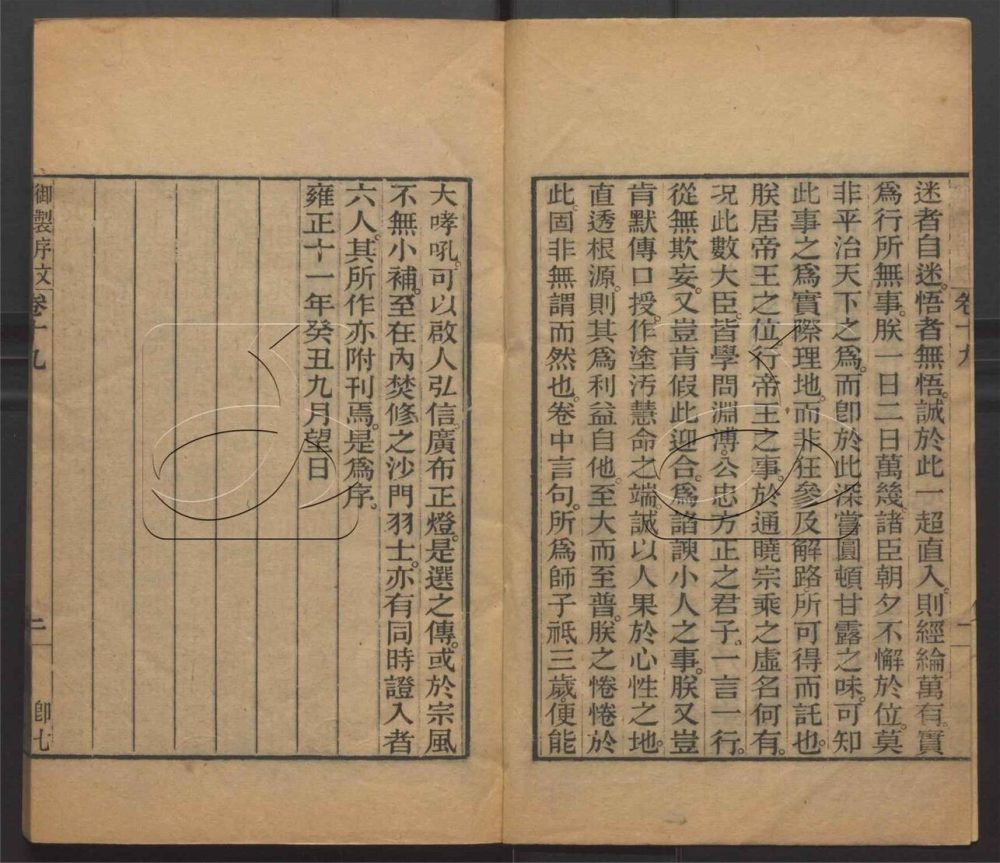 迷者自迷。悟者無悟。誠於此一超直入。則經綸萬有。實
爲行所無事。朕一日二日萬幾。諸臣朝夕不懈於位。莫
非平治天下之爲。而卽於此深嘗圓頓甘露之味。可知
此事之爲實際理地。而非狂參及解路。所可得而託也。
朕居帝王之位。行帝王之事。於通曉宗乘之虛名何有。
况此數大臣。皆學問淵溥。公忠方正之君子。一言一行。
從無欺妄。又豈肯假此迎合。爲諂諛小人之事。朕又豈
肯默傳口授。作塗汚慧命之端。誠以人果於心性之地。
直透根源。則其爲利益自他。至大而至普。朕之惓惓於
此。固非無謂而然也。卷中言句。所爲師子祗三歲。便能
卷十九
二
大哮吼。可以啟人弘信。廣布正燈。是選之傳。或於宗風
不無小補。至在內焚修之沙門羽士。亦有同時證入者
六人。其所作亦附刊焉。是爲序。
雍正十一年癸丑九月望日
御製序文 卷十九
二
卽七